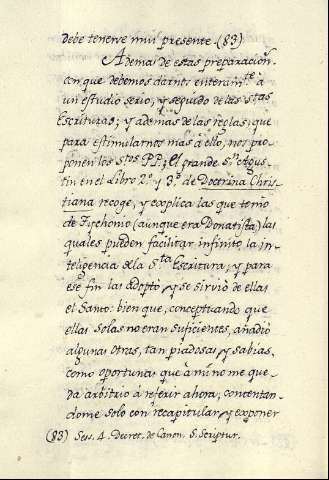 debe tenerse mui presente.(83)
Ademas de estas preparacion.s
con que debemos darnos enteram.te à
un estudio serio, y seguido de las S.tas
Escrituras; y ademas de las reglas, que
para estimularnos mas à ello, nos pro-
ponen los S.tos P.P.; El grande S.n Agus-
tin en el Libro 2.º y 3.º de Doctrina Chris-
tiana recoge, y explica las que tomó
de Tychonio (aunque era Donatista) las
quales pueden facilitar infinito la in-
teligencia de la S.ta Escritura, y para
ese fin las adoptó, y se sirvió de ellas
el Santo: bien que, conceptuando que
ellas solas no eran suficientes, añadió
algunas otras, tan piadosas, y sabias,
como oportunas que à mi no me que-
da arbitrio à referir ahora, contentan-
dome solo con recapitular, y exponer
(83) Ses. 4. Decret. de Canon. S. Scriptur.